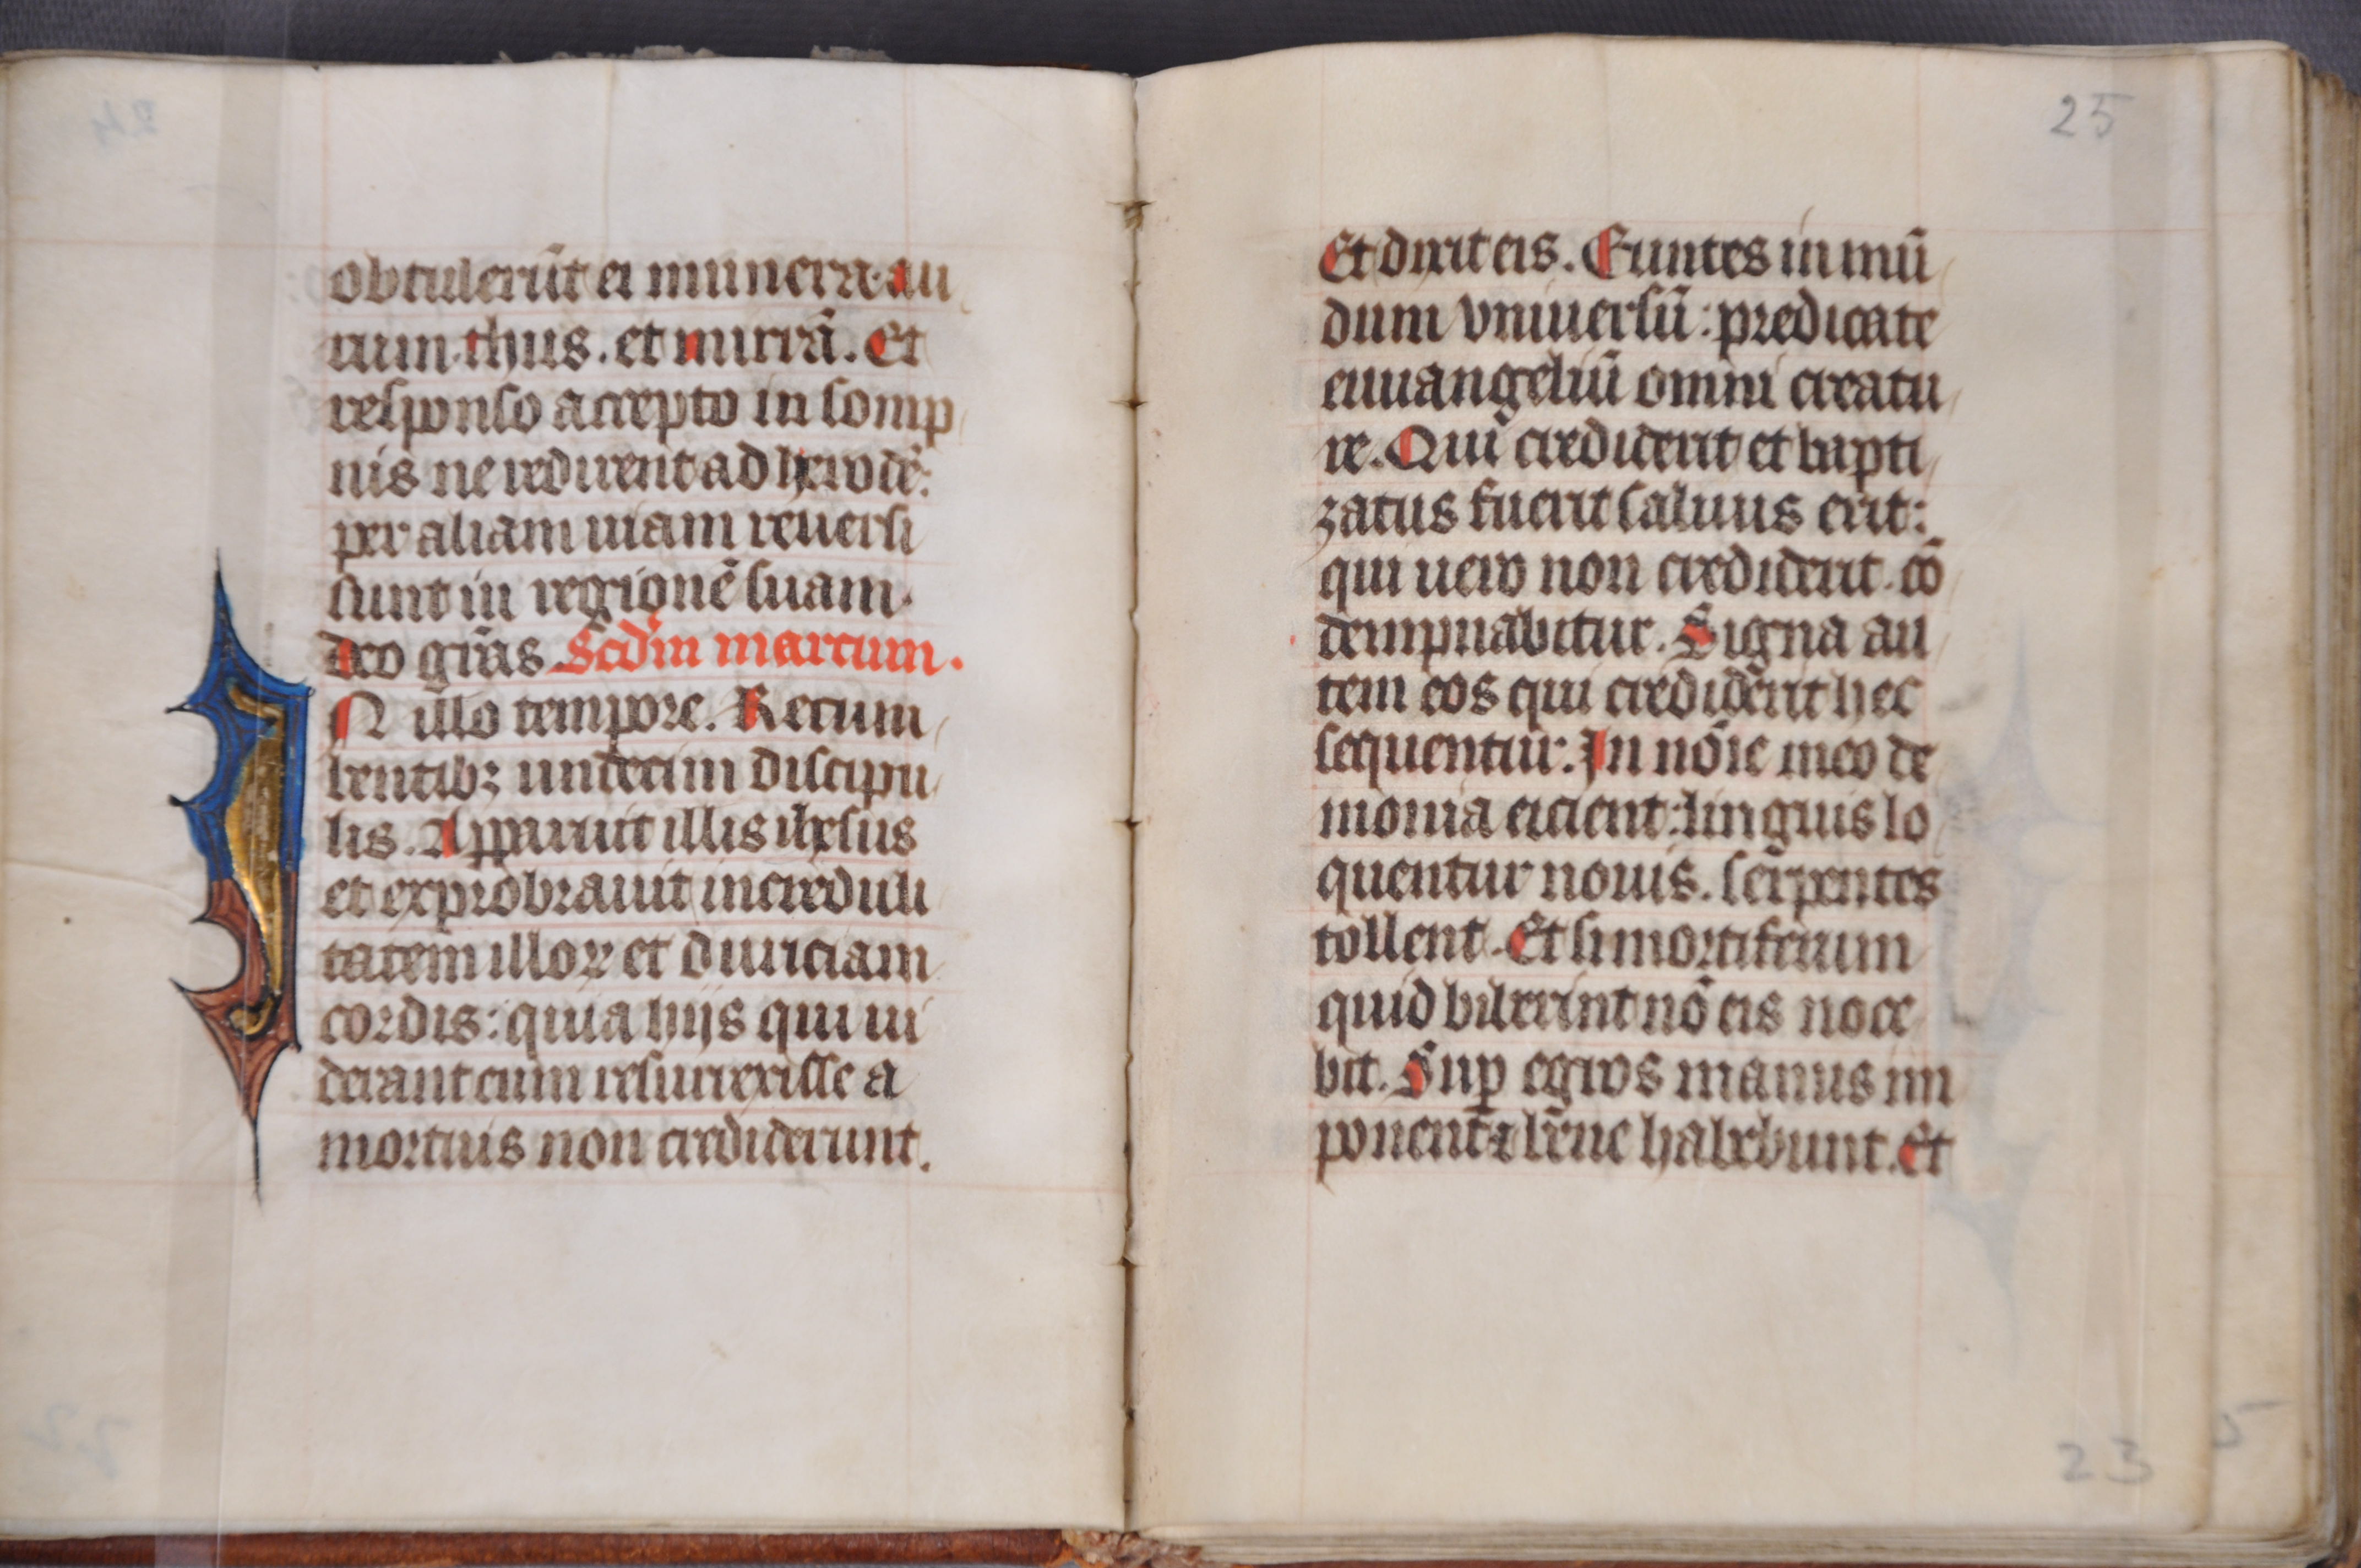 obtulerūt ei munera. au
rum. thus. et mirrā. Et
responso accepto in somp
nis ne redirent ad herodē:
per aliam uiam reuersi
sunt in regionē suam.
deo grās. Scd'm marcum.
IN illo tempore. Recum
bentibꝫ undecim discipu
lis. Apparuit illis ihesus
et exprobrauit increduli
tatem illoꝝ et duriciam
cordis: quia hijs qui ui
derant eum resurrexisse a
mortuis non crediderunt.
25
Et dixit eis. Euntes in mū
dum vniuersū: predicate
euuangeliū omni creatu
re. Qui crediderit et bapti
zatus fuerit saluus erit:
qui uero non crediderit. cō
dempnabitur. Signa au
tem eos qui crediderīt hec
sequentur. In nōie meo de
monia eicient: linguis lo
quentur nouis. serpentes
tollent. Et si mortiferum
quid biberint nō eis noce
bit. Suꝑ egros manus im
ponent ⁊ bene habebunt. Et
23